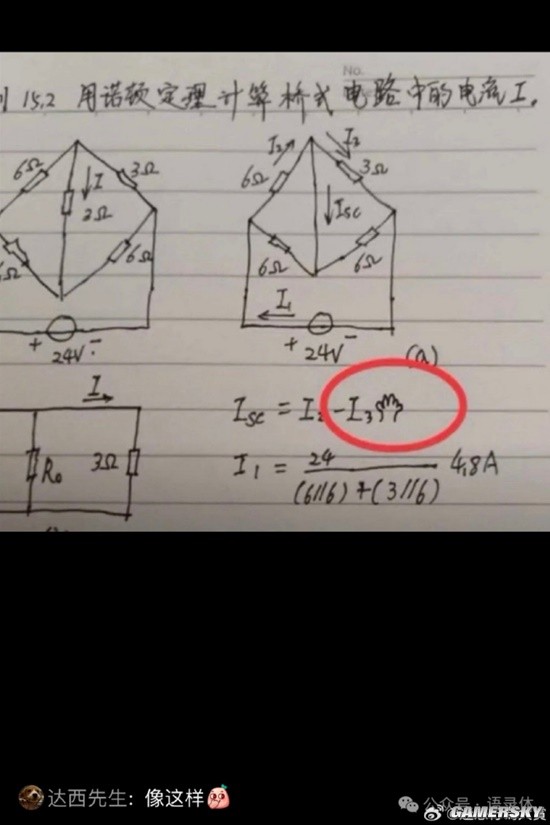 No.
15.2 用诺顿定理计算桥式电路中的电流 I。
6Ω
I
3Ω
3Ω
6Ω
+ 24V -
I₂
I₃
6Ω
3Ω
Isc
6Ω
6Ω
I₁
+ 24V -
(a)
I
R₀
3Ω
Isc = I₂ - I₃
I₁ = 24 / (6//6) + (3//6) 4.8A
达西先生: 像这样
公众号 · 语录体
GAMERSKY